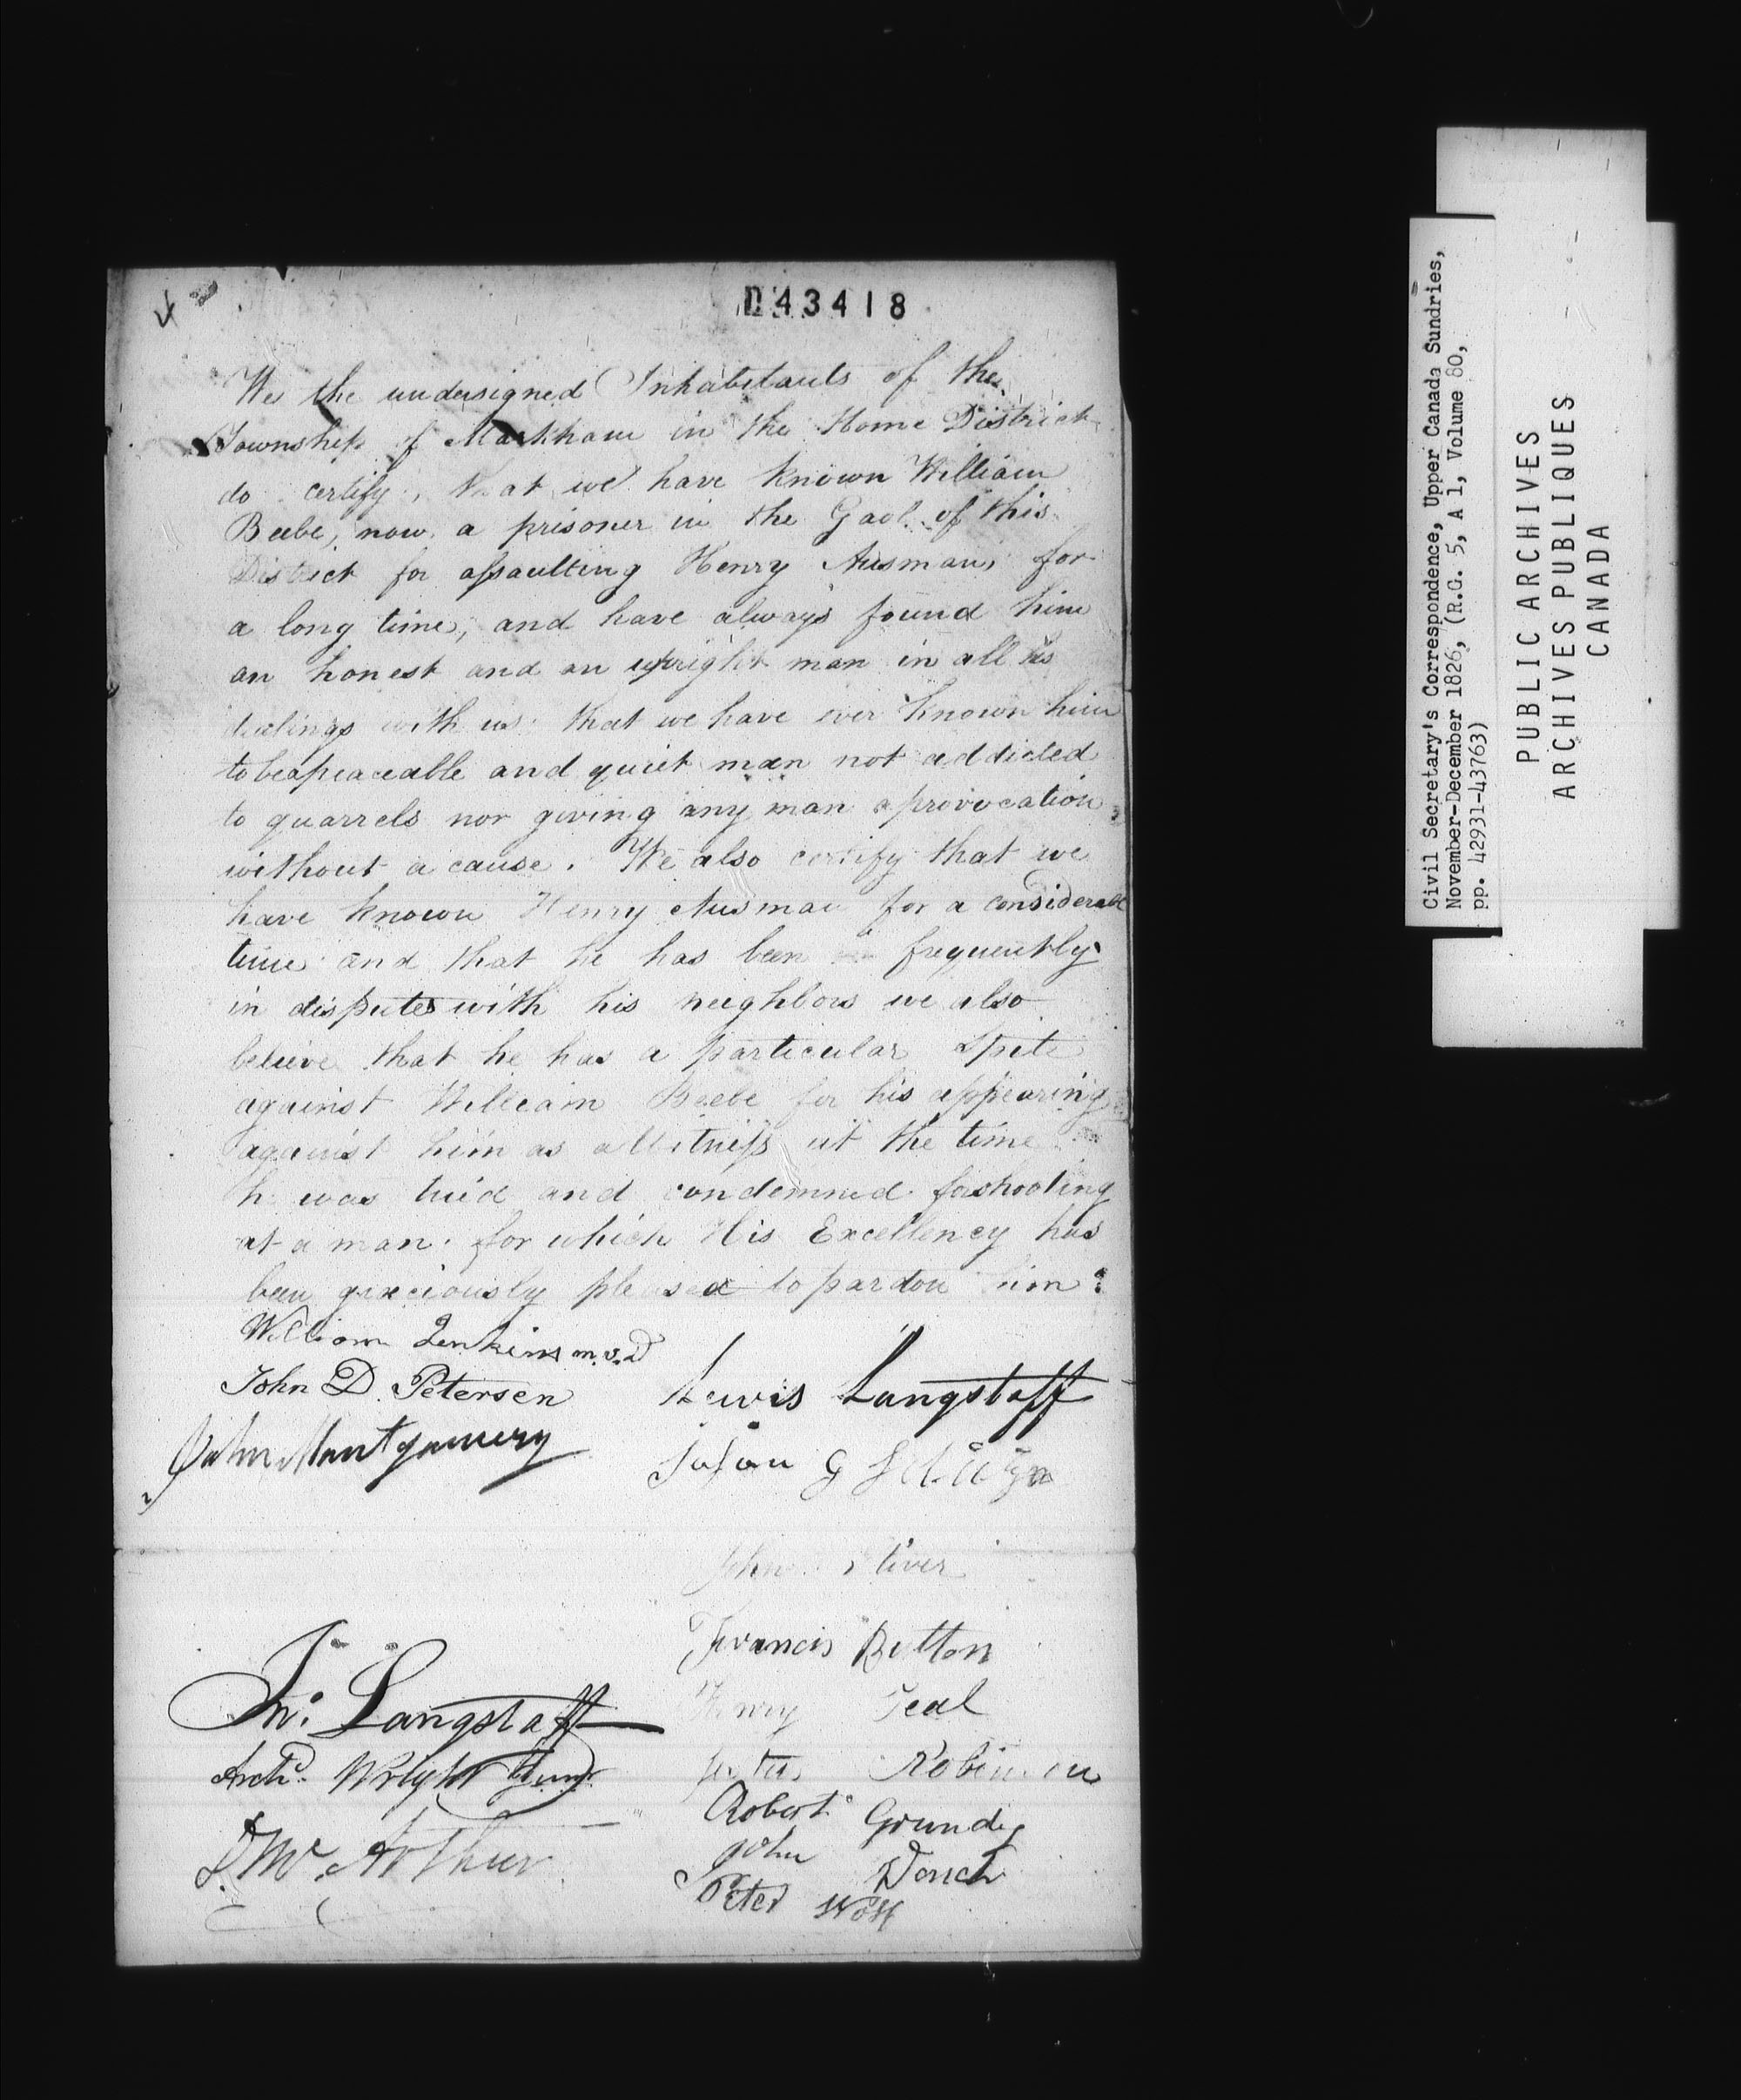 D43418
We the undersigned Inhabitants of the
Township of Markham in the Home District
do certify, that we have known William
Beebe, now a prisoner in the Gaol of this
District for assaulting Henry Ausman, for
a long time, and have always found him
an honest and an upright man in all his
dealings with us. that we have ever known him
to be a peaceable and quiet man not addicted
to quarrels nor giving any man a provocation
without a cause. We also certify that we
have known Henry Ausman for a considerable
time and that he has been frequently
in disputes with his neighbors we also
believe that he has a particular Spite
against William Beebe for his appearing
against him as a Witness at the time
he was tried and condemned for shooting
at a man. for which His Excellency has
been graciously pleased to pardon him.
William Jenkins m.v.D
John D. Petersen
John Montgomery
Lewis Langstaff
John Stiver
Francis Button
Henry Teal
Peter Robinson
Robert Grundy
John
Peter
Jno. Langstaff
Archd. Wright Junr.
D. McArthur
Civil Secretary's Correspondence, Upper Canada Sundries,
November-December 1826, (R.G. 5, A 1, Volume 80,
pp. 42931-43763)
PUBLIC ARCHIVES
ARCHIVES PUBLIQUES
CANADA